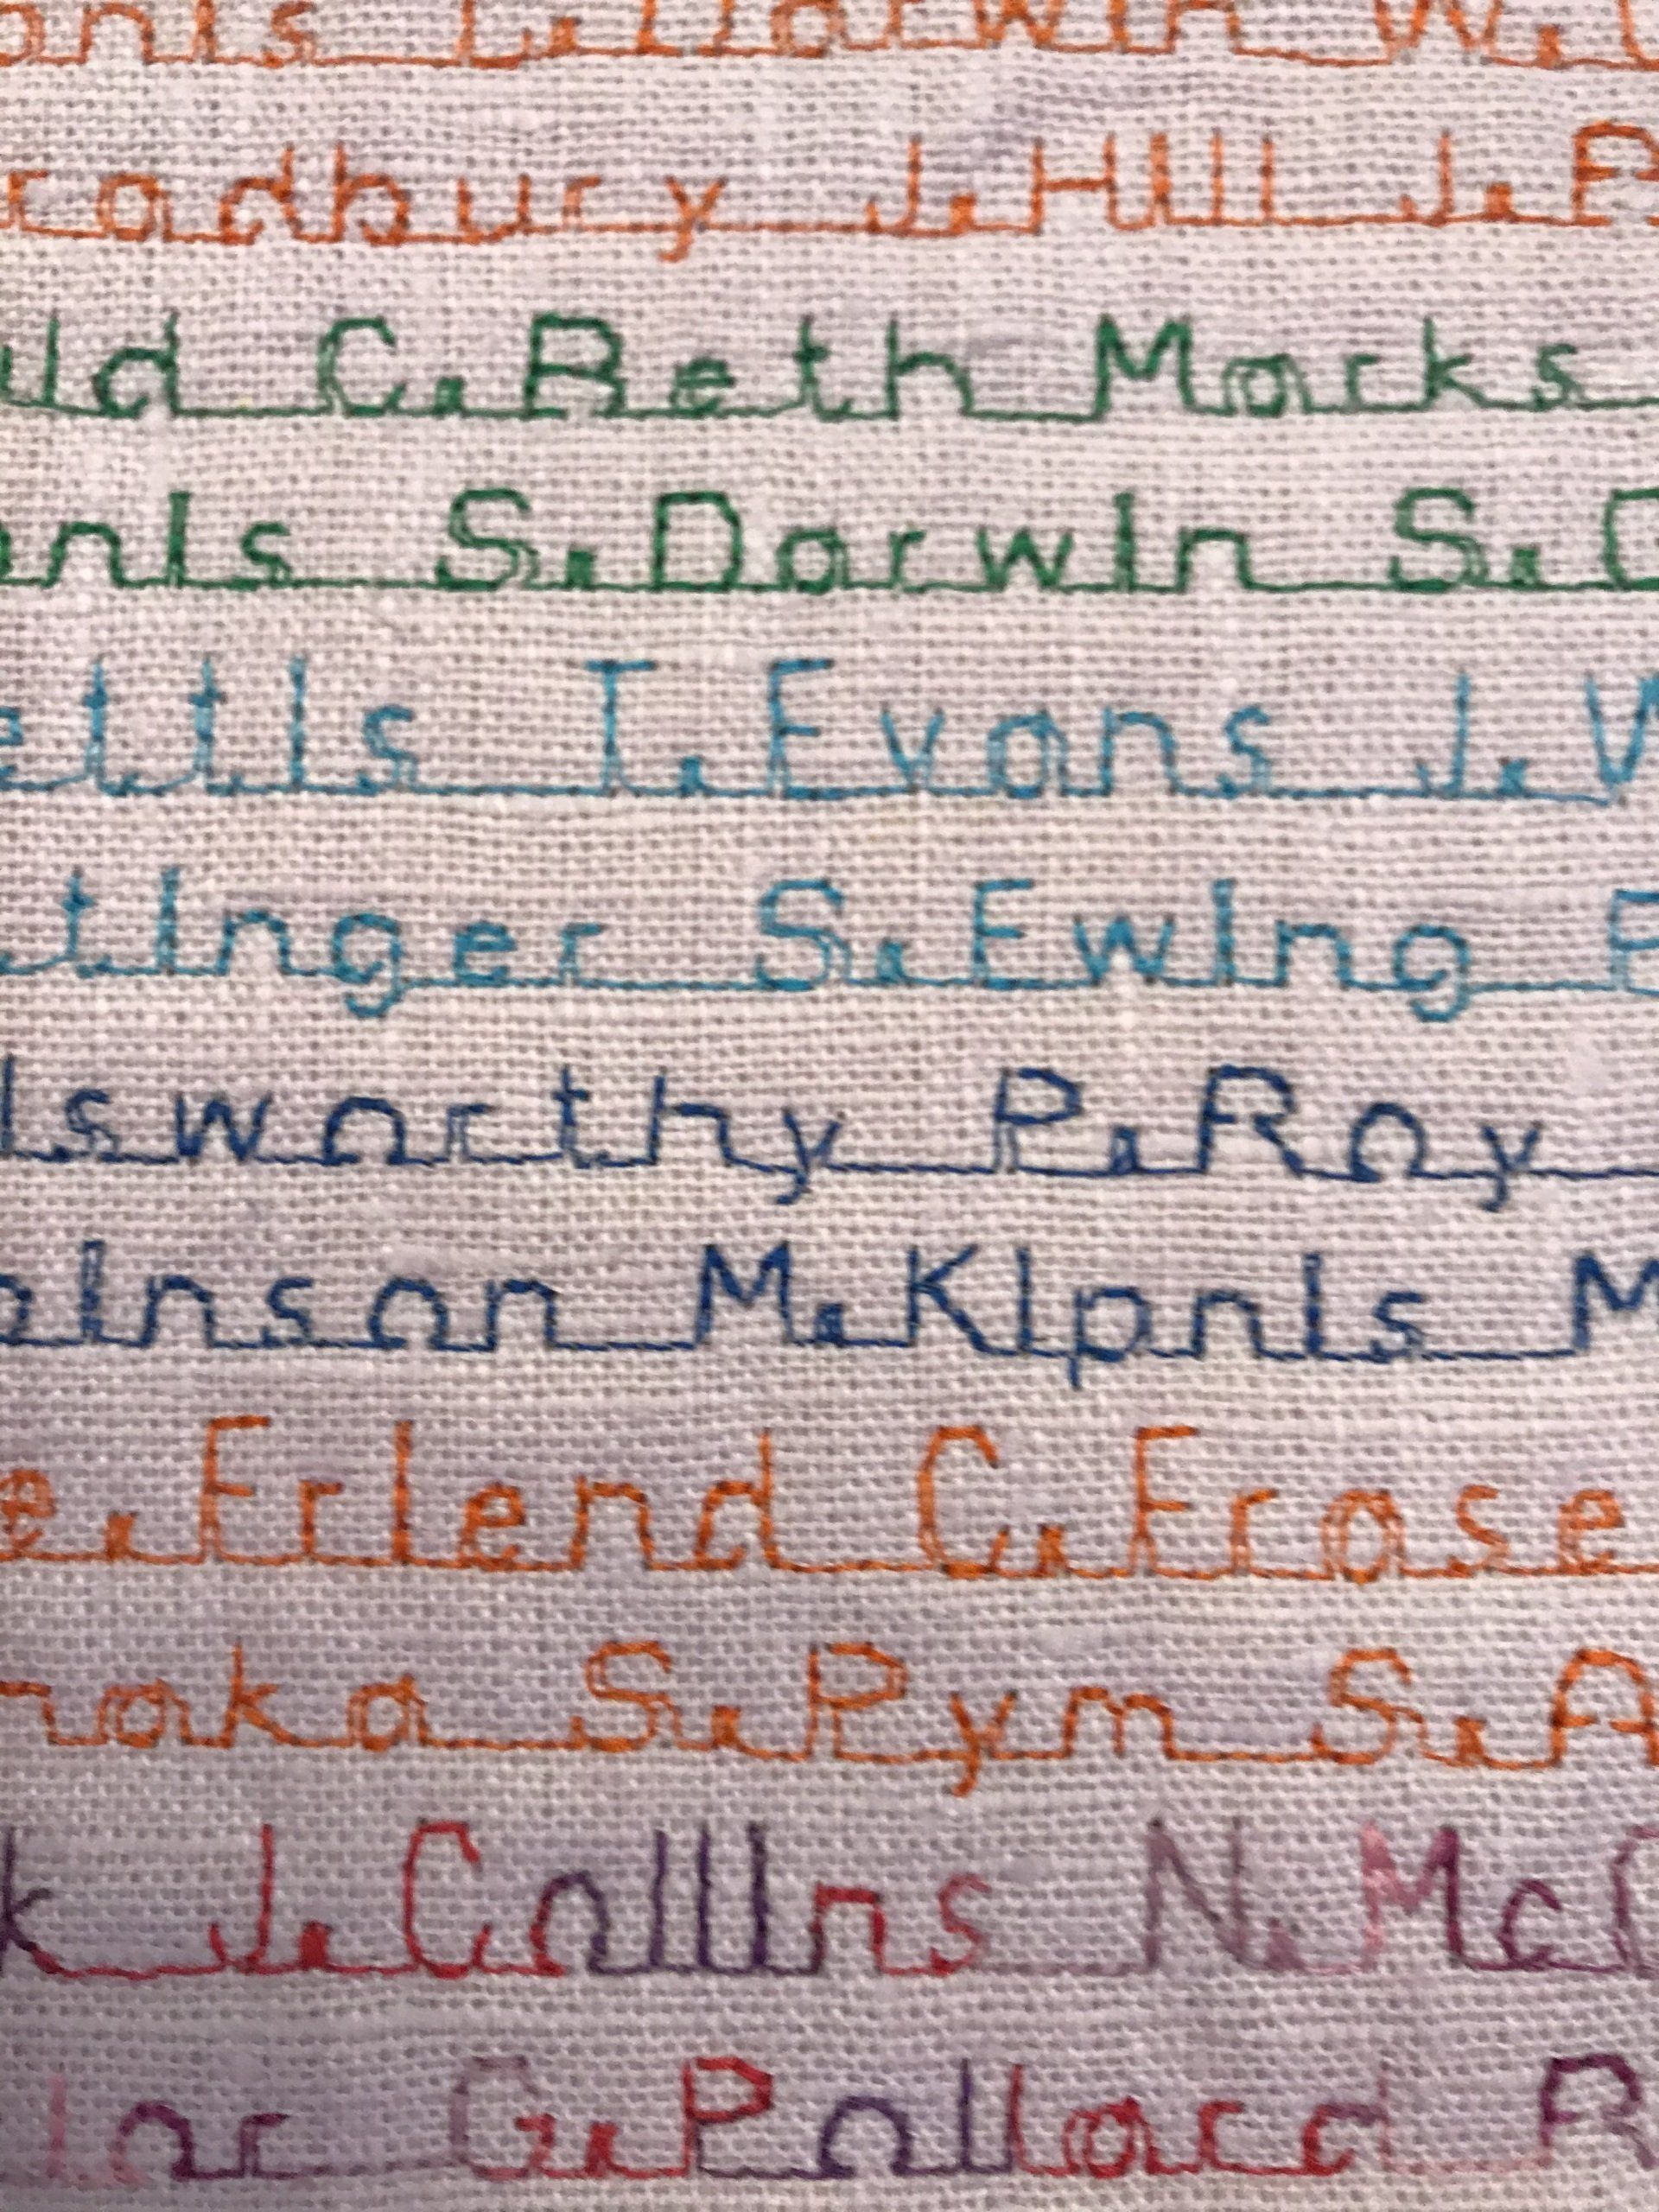 onis L.Darwin W.
radbury J.Hill J.
uld C.Beth Marks
onis S.Darwin S.
ettis T.Evans J.
tinger S.Ewing
lsworthy P.Roy
binson M.Kipnis M
e.Friend C.Frase
naka S.Pym S.A
k J.Collins N.Mc
lor G.Pollard R